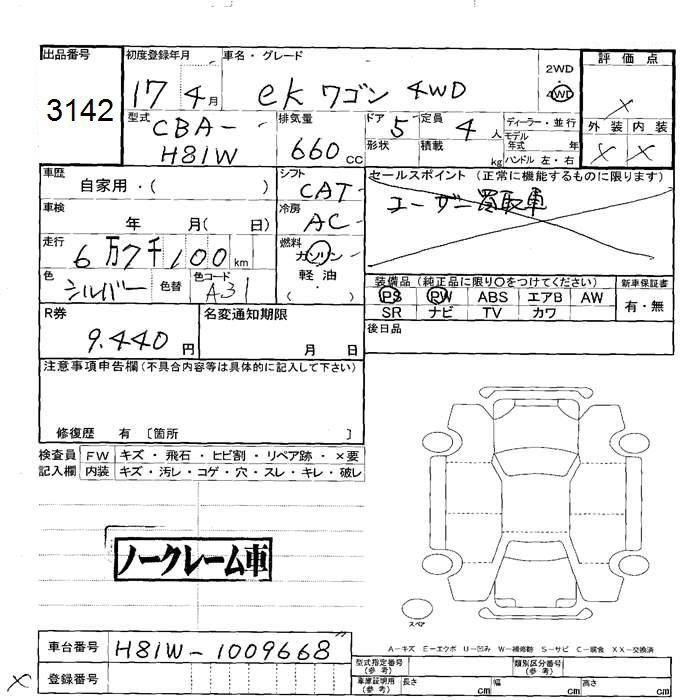 出品番号 初度登録年月 車名・グレード 評価点
3142 17 4月 ek ワゴン 4WD 2WD・4WD ×
型式 排気量 ドア 定員 ディーラー・並行 外装 内装
CBA- 660cc 5 4人 モデル年式 年 × ×
H81W 形状 積載 kg ハンドル 左・右
車歴 シフト セールスポイント(正常に機能するものに限ります)
自家用・( ) CAT ユーザー買取車
車検 冷房
年 月( 日) AC
走行 燃料
6万7千100km ガソリン
色 色替 色コード 軽油 装備品(純正品に限り○をつけてください) 新車保証書
シルバー A31 ( ) PS PW ABS エアB AW 有・無
SR ナビ TV カワ
R券 名変通知期限 後日品
9.440円 月 日
注意事項申告欄(不具合内容等は具体的に記入して下さい)
修復歴 有 〔箇所 〕
検査員 FW キズ・飛石・ヒビ割・リペア跡・×要
記入欄 内装 キズ・汚レ・コゲ・穴・スレ・キレ・破レ
ノークレーム車
スペア
A-キズ E-エクボ U-凹み W-補修跡 S-サビ C-腐食 XX-交換済
車台番号 H81W-1009668
型式指定番号(参考) 類別区分番号(参考)
× 登録番号
車庫証明用(参考) 長さ cm 幅 cm 高さ cm